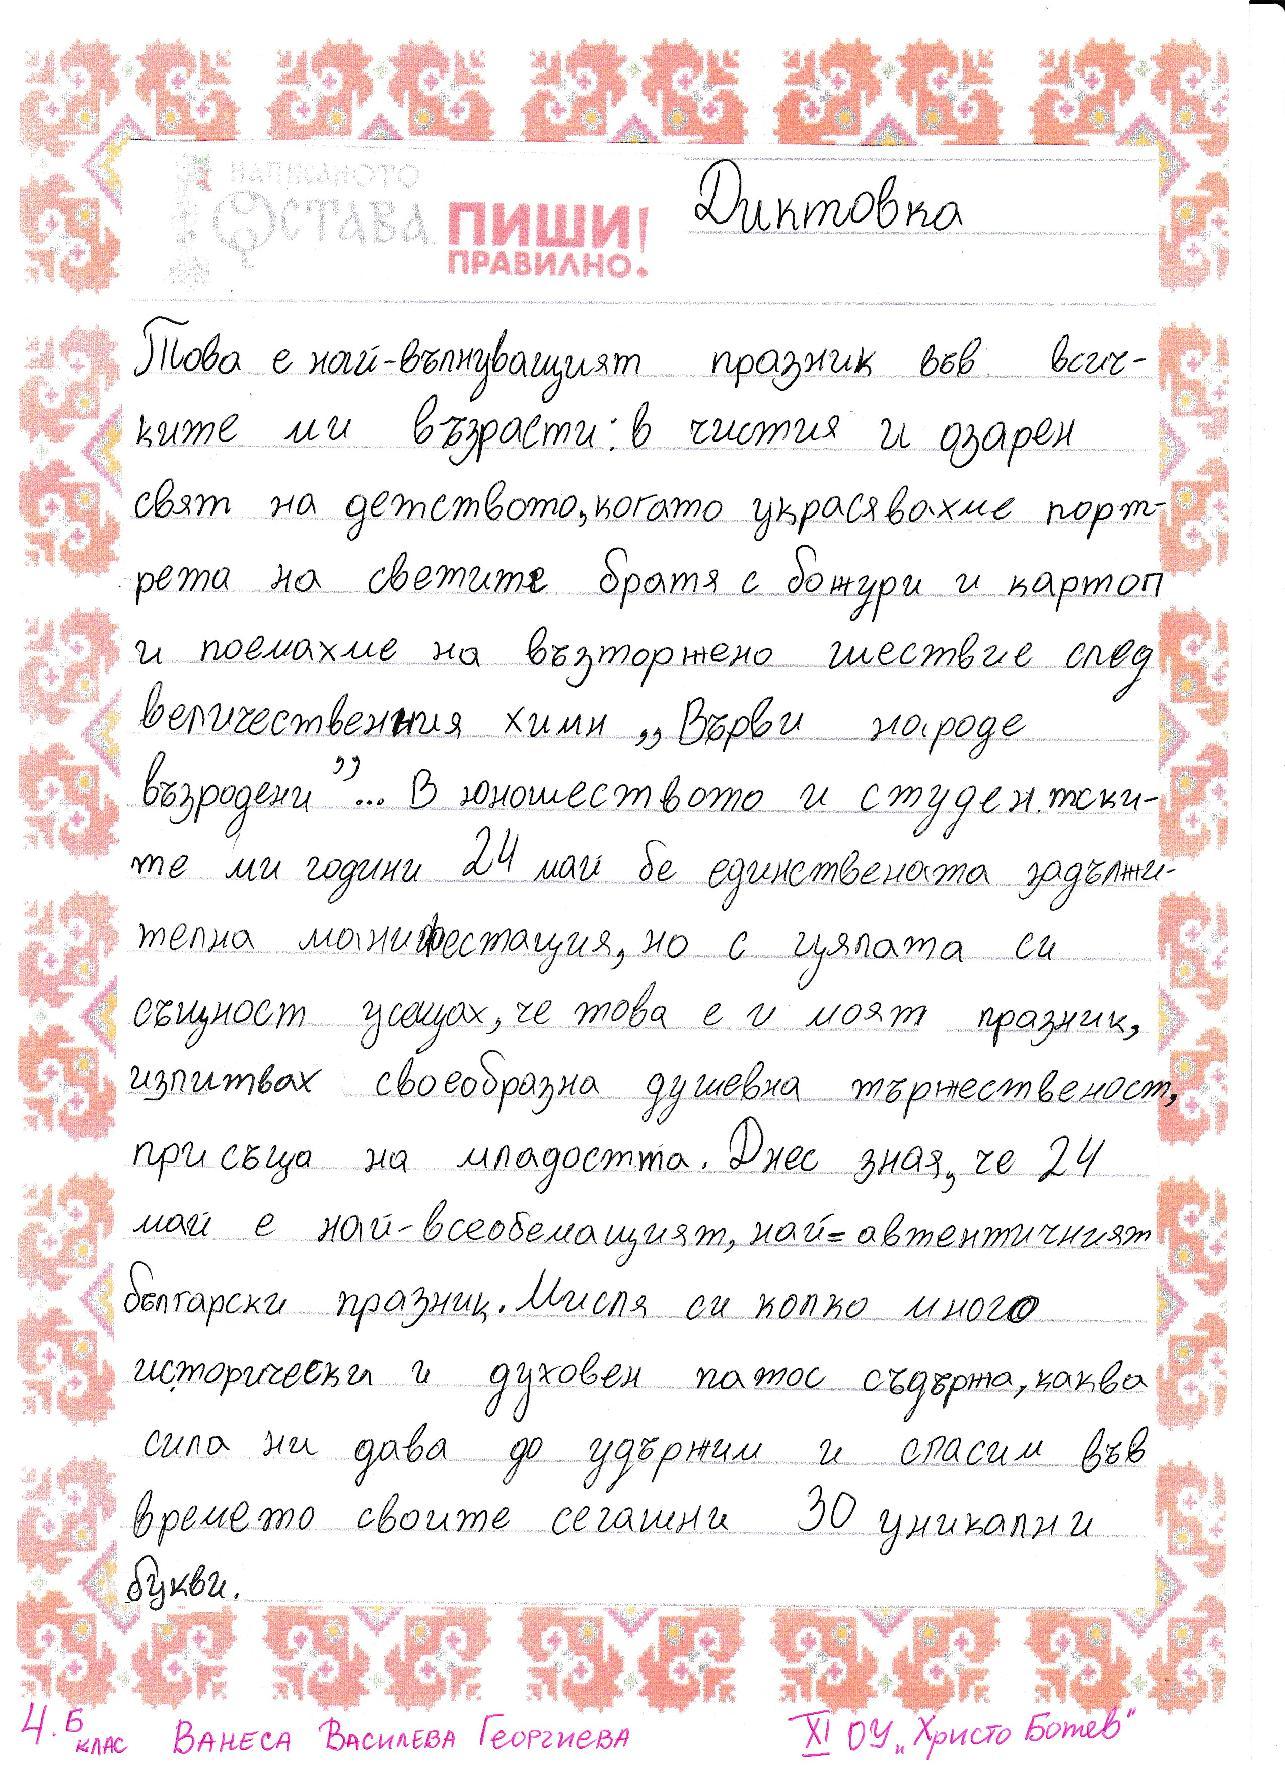 НАПИСАНОТО
ОСТАВА
ПИШИ
ПРАВИЛНО!
Диктовка
Това е най-вълнуващият празник във всич-
ките ми възрасти: в чистия и озарен
свят на детството, когато украсявахме порт-
рета на светите братя с божури и картоп
и поемахме на възторжено шествие след
величествения химн „Върви народе
възродени”... В юношеството и студентски-
те ми години 24 май бе единствената задължи-
телна манифестация, но с цялата си
същност усещах, че това е и моят празник,
изпитвах своеобразна душевна тържественост,
присъща на младостта. Днес зная, че 24
май е най-всеобемащият, най=автентичният
български празник. Мисля си колко много
исторически и духовен патос съдържа, каква
сила ни дава до удържим и спасим във
времето своите сегашни 30 уникални
букви.
4. Б клас ВАНЕСА ВАСИЛЕВА ГЕОРГИЕВА XI ОУ „Христо Ботев"